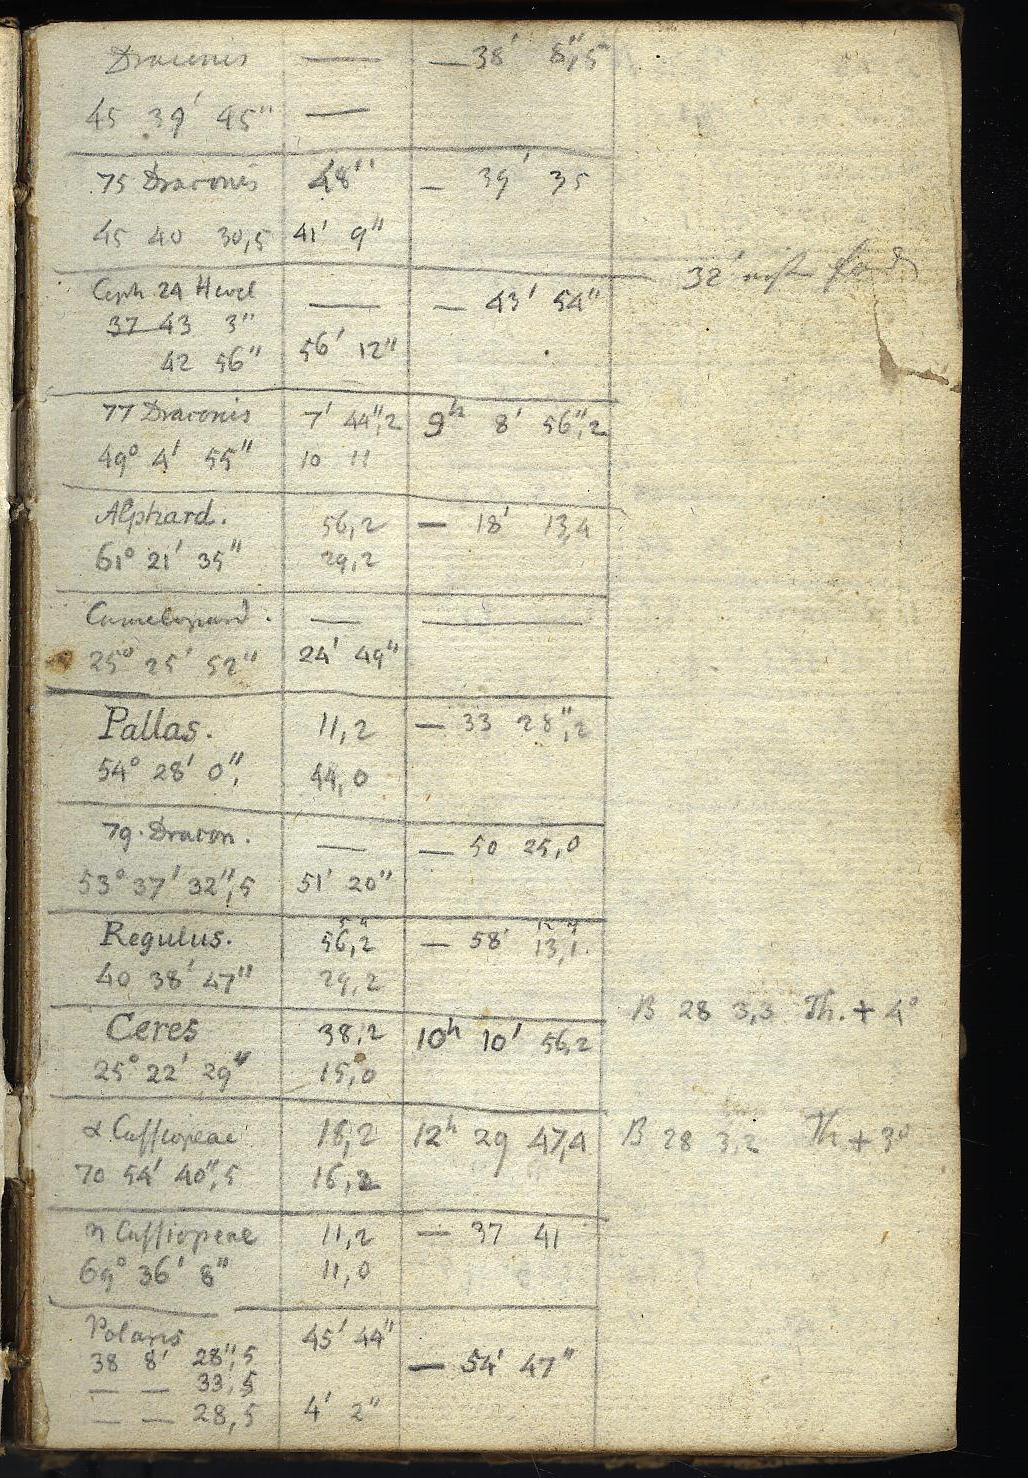 Draconis — — 38' 8",5
45 39' 45" —
75 Draconis 48" — 39' 35
45 40 30,5 41' 9"
32' nist
Ceph 24 Hevel — — 43' 54"
37 43 3"
42 56" 56' 12"
77 Draconis 7' 44",2 9h 8' 56",2
49° 4' 55" 10 11
Alphard. 56,2 — 18' 13,4
61° 21' 35" 29,2
Camelopard. — —
25° 25' 52" 24' 49"
Pallas. 11,2 — 33 28",2
54° 28' 0", 44,0
79. Dracon. — — 50 25,0
53° 37' 32",5 51' 20"
Regulus. 56,2 — 58' 13,1.
40 38' 47" 29,2
B 28 3,3 Th. + 4°
Ceres 38,2 10h 10' 56,2
25° 22' 29" 15,0
α Cassiopeae 18,2 12h 29 47,4 B 28 3,2 Th + 3°
70 54' 40",5 16,2
η Cassiopeae 11,2 — 37 41
69° 36' 8" 11,0
Polaris 45' 44"
38 8' 28",5 — 54' 47"
— — 33,5
— — 28,5 4' 2"